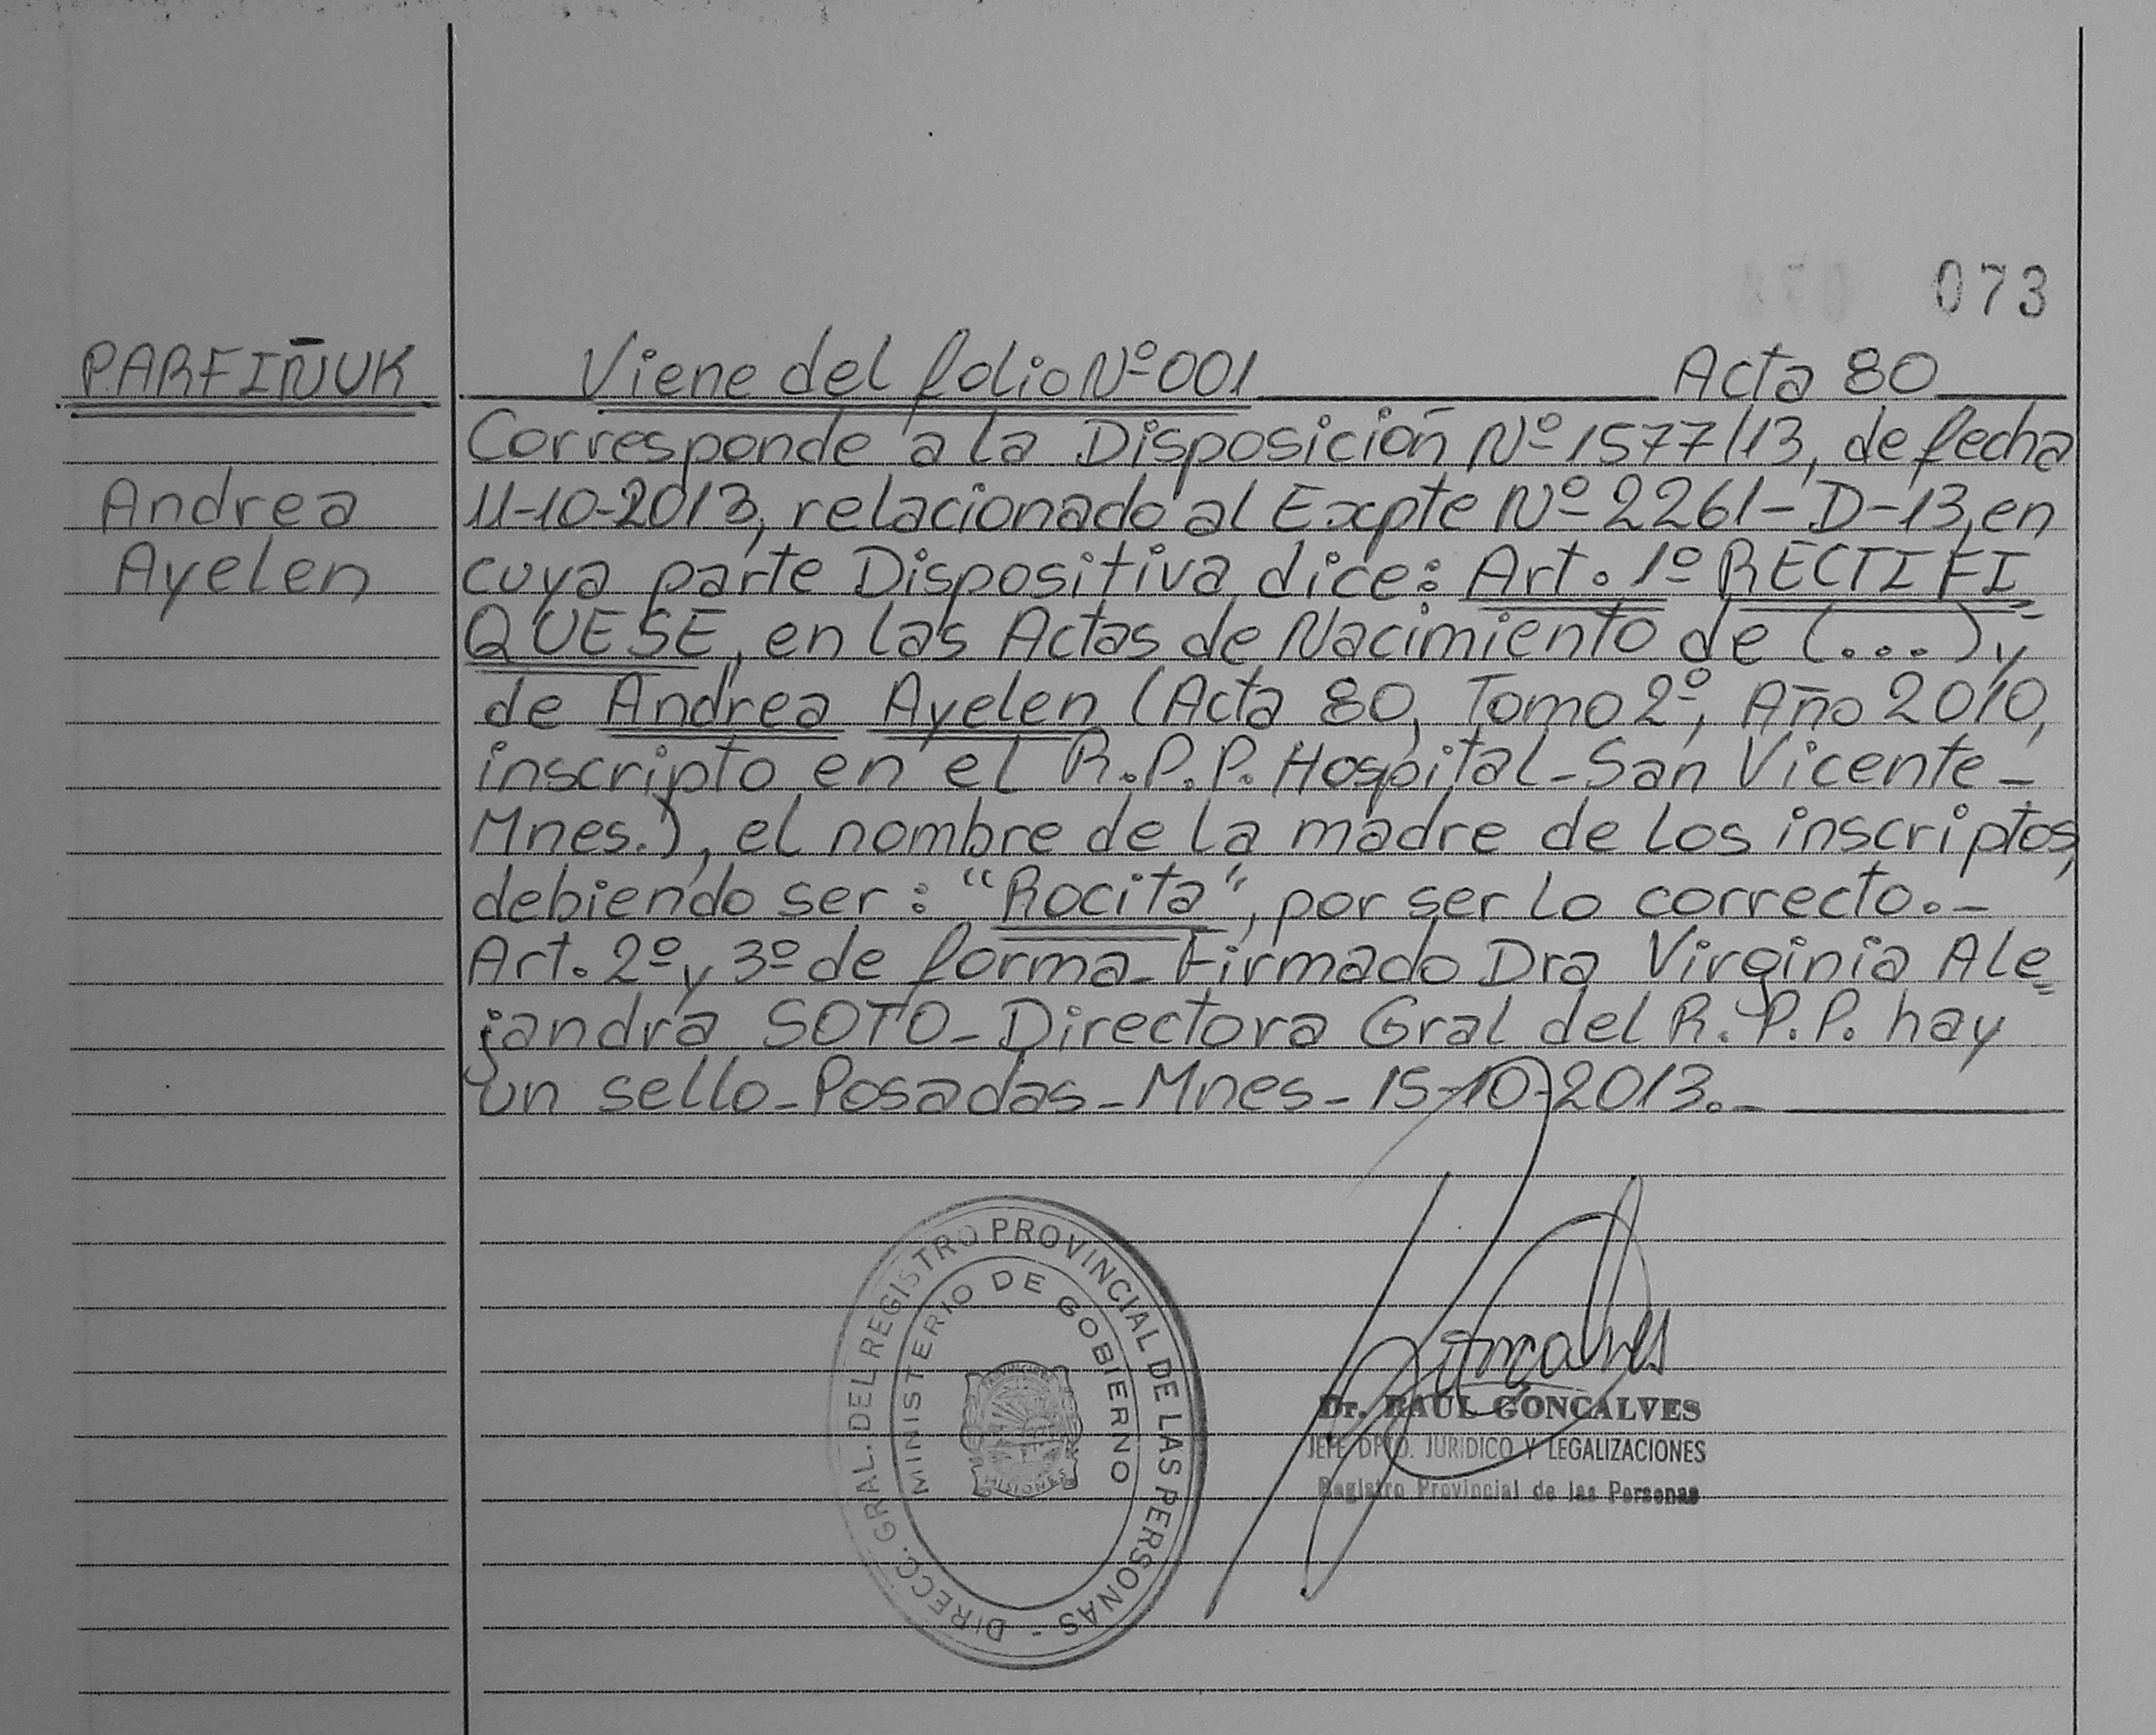 073
PARFIÑUK
Andrea
Ayelen
Viene del folio Nº 001 Acta 80
Corresponde a la Disposición Nº 1577/13, de fecha
11-10-2013, relacionado al Expte Nº 2261-D-13, en
cuya parte Dispositiva dice: Art. 1º RECTIFI
QUESE, en las Actas de Nacimiento de (...) y
de Andrea Ayelen (Acta 80, Tomo 2º, Año 2010,
inscripto en el R.P.P. Hospital-San Vicente-
Mnes.), el nombre de la madre de los inscriptos,
debiendo ser: "Rocita", por ser lo correcto.-
Art. 2º y 3º de forma- Firmado Dra Virginia Ale
jandra SOTO- Directora Gral del R.P.P. hay
un sello- Posadas- Mnes- 15-10-2013.-
DIRECC. GRAL. DEL REGISTRO PROVINCIAL DE LAS PERSONAS -
MINISTERIO DE GOBIERNO
MISIONES
Dr. RAUL GONCALVES
JEFE DPTO. JURIDICO Y LEGALIZACIONES
Registro Provincial de las Personas